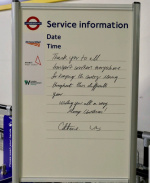 Service information
Date
Time
Thank you to all
transport workers everywhere
for keeping the country moving
throughout this difficult
year.
Wishing you all a very
Merry Christmas!